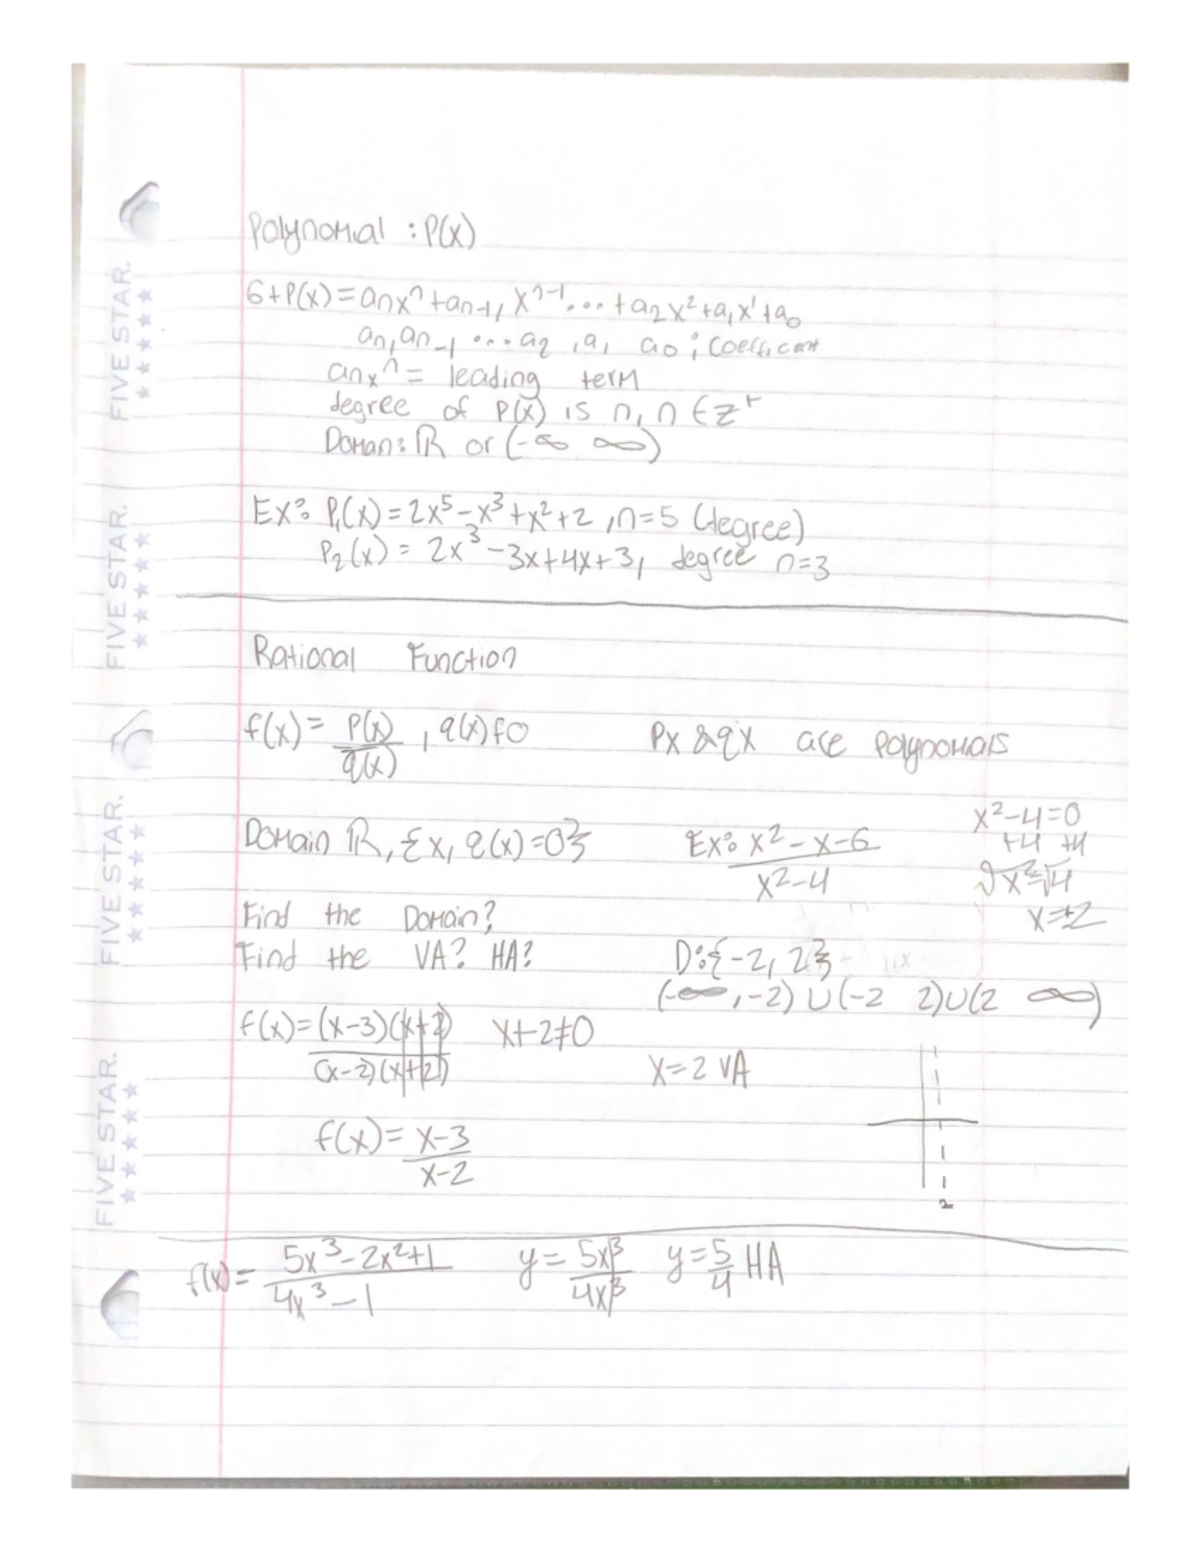 Polynomial : P(x)
6+P(x) = aₙxⁿ + aₙ₋₁, xⁿ⁻¹... + a₂x² + a₁x¹ + a₀
aₙ, aₙ₋₁ ... a₂, a₁ a₀ ; coefficient
aₙxⁿ = leading term
degree of P(x) is n, n ∈ z⁺
Doman: ℝ or (-∞ ∞)
Ex: P₁(x) = 2x⁵ - x³ + x² + 2, n=5 (degree)
P₂(x) = 2x³ - 3x + 4x + 3, degree n=3
Rational Function
f(x) = P(x)/q(x), q(x) f0 Px & qx are polynomials
x²-4=0
+4 +4
Domain ℝ, {x, q(x)=0} Ex: x²-x-6/x²-4
√x²=√4
x=±2
Find the Domain?
Find the VA? HA? D:{-2, 2}
(-∞, -2) ∪ (-2 2) ∪ (2 ∞)
f(x) = (x-3)(x+2)/(x-2)(x+2) x+2≠0
x=2 VA
f(x) = x-3/x-2
2
f(x) = 5x³-2x²+1/4x³-1 y = 5x³/4x³ y = 5/4 HA
FIVE STAR.
FIVE STAR.
FIVE STAR.
FIVE STAR.